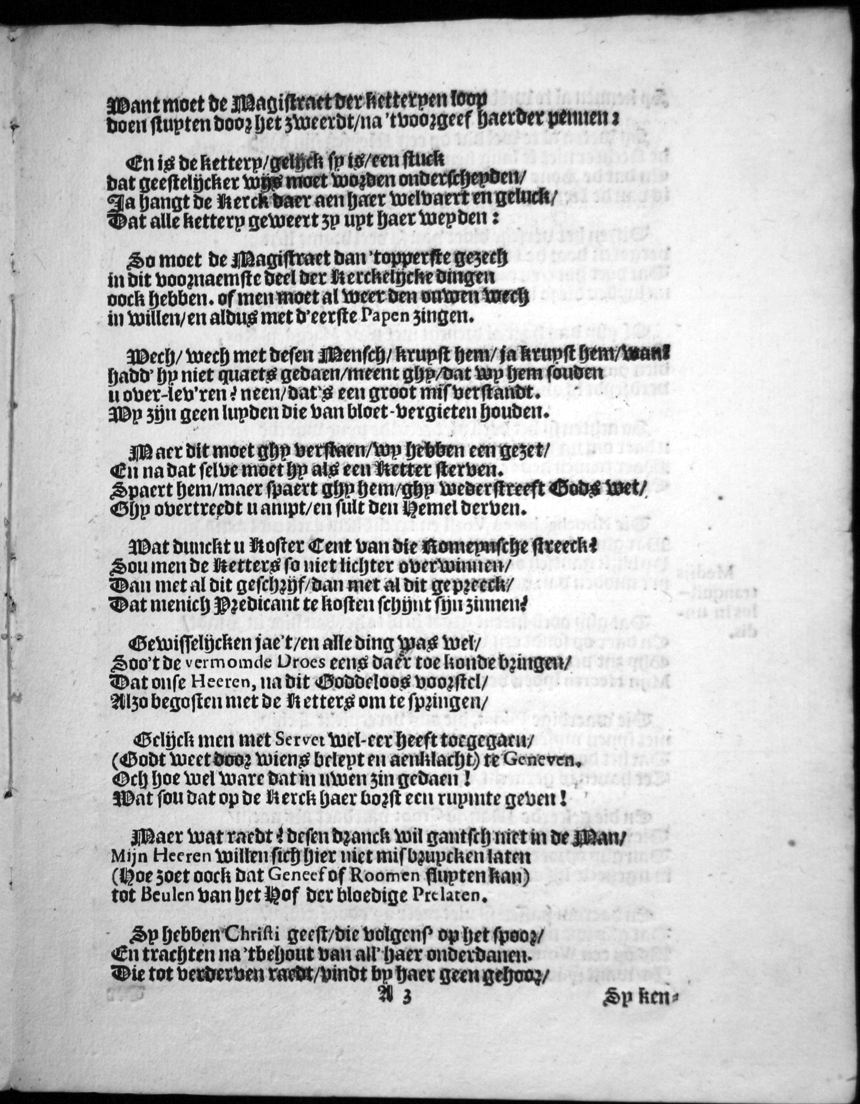 Want moet de Magistraet der ketteryen loop
doen stuyten door het zweerdt/na 'tvoorgeef haerder pennen:
En is de kettery/gelijck sy is/een stuck
dat geestelijcker wijs moet worden onderscheyden/
Ja hangt de Kerck daer aen haer welvaert en geluck/
Dat alle kettery geweert zy uyt haer weyden:
So moet de Magistraet dan 'topperste gezech
in dit voornaemste deel der Kerckelijcke dingen
oock hebben. of men moet al weer den ouwen wech
in willen/en aldus met d'eerste Papen zingen.
Wech/ wech met desen Mensch/ kruyst hem/ ja kruyst hem/want
hadd' hy niet quaets gedaen/meent ghy/dat wy hem souden
u over-lev'ren? neen/dat's een groot misverstandt.
Wy zijn geen luyden die van bloet-vergieten houden.
Maer dit moet ghy verstaen/wy hebben een gezet/
En na dat selve moet hy als een Ketter sterven.
Spaert hem/maer spaert ghy hem/ghy wederstreeft Gods wet/
Ghy overtreedt u ampt/en sult den Hemel derven.
Wat dunckt u Koster Cent van die Romeynsche streeck?
Sou men de Ketters so niet lichter overwinnen/
Dan met al dit geschrijf/dan met al dit gepreeck/
Dat menich Predicant te kosten schijnt sijn zinnen?
Gewisselijcken jae't/en alle ding was wel/
Soo't de vermomde Droes eens daer toe konde bringen/
Dat onse Heeren, na dit Goddeloos voorstel/
Alzo begosten met de Ketters om te springen/
Gelijck men met Servet wel-eer heeft toegegaen/
(Godt weet door wiens beleyt en aenklacht) te Geneven.
Och hoe wel ware dat in uwen zin gedaen!
Wat sou dat op de Kerck haer borst een ruymte geven!
Maer wat raedt? desen dranck wil gantsch niet in de Man/
Mijn Heeren willen sich hier niet misbruycken laten
(Hoe zoet oock dat Geneef of Roomen fluyten kan)
tot Beulen van het Hof der bloedige Prelaten.
Sy hebben Christi geest/die volgens' op het spoor/
En trachten na 'tbehout van all' haer onderdanen.
Die tot verderven raedt/vindt by haer geen gehoor/
A 3 Sy ken-